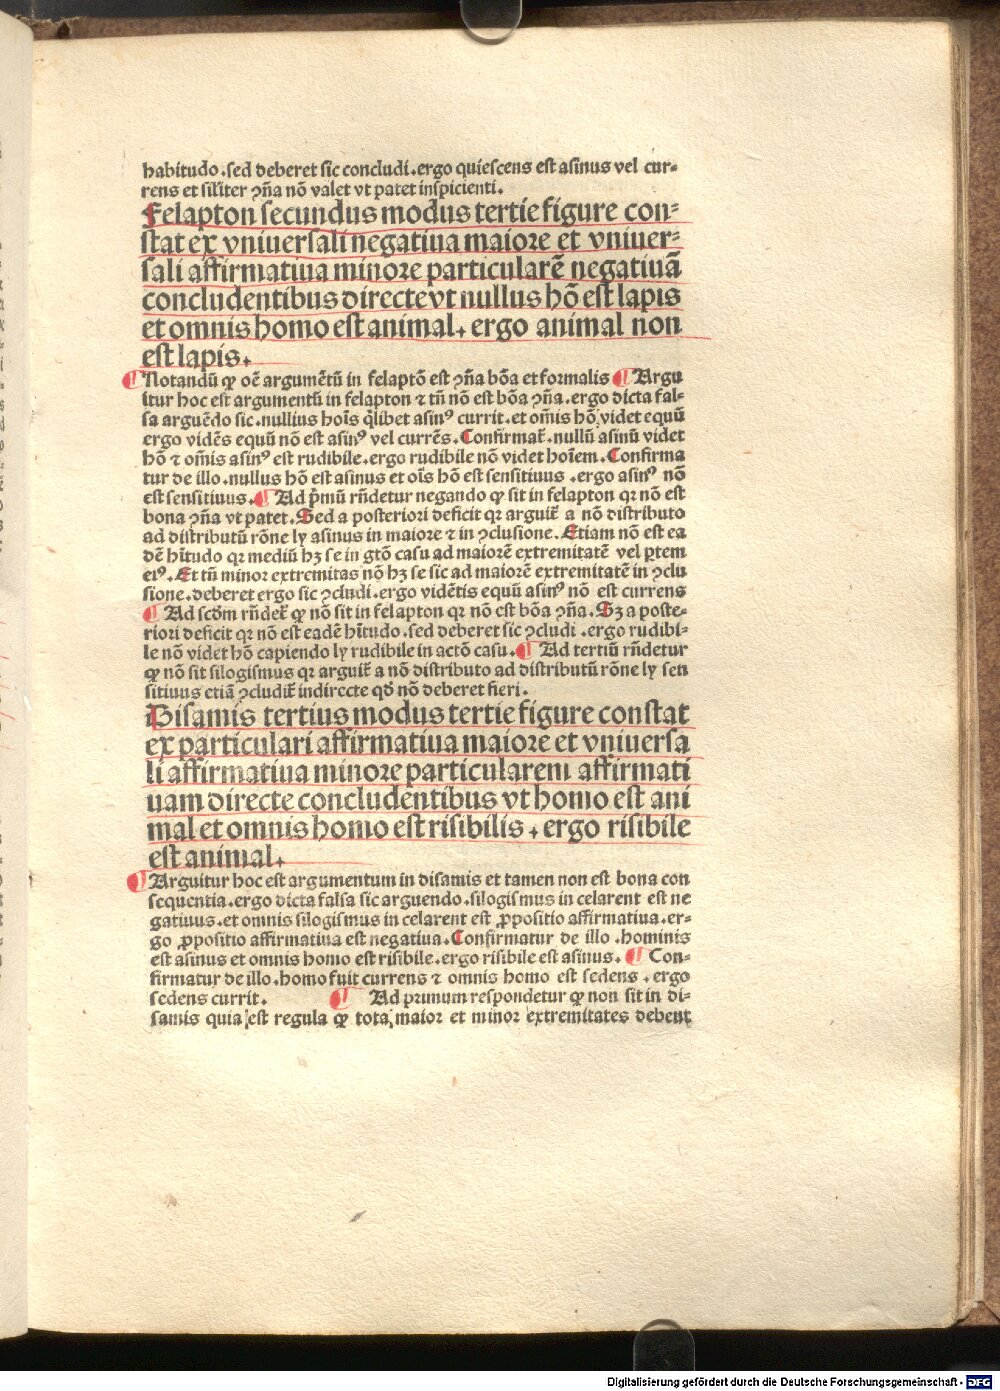 habitudo .sed deberet sic concludi .ergo quiescens est asinus vel cur⸗
rens et siliter ꝯña nõ valet vt patet inspicienti.
Felapton secundus modus tertie figure con⸗
stat ex vniuersali negatiua maiore et vniuer⸗
sali affirmatiua minore particularẽ negatiuã
concludentibus directe vt nullus hõ est lapis
et omnis homo est animal. ergo animal non
est lapis.
¶ Notandũ ꝙ oẽ argumẽtũ in felaptõ est ꝯña bõa et formalis ¶ Argu
itur hoc est argumentũ in felapton ⁊ tñ nõ est bõa ꝯña .ergo dicta fal⸗
sa arguẽdo sic .nullius hoĩs q̃libet asinꝰ currit .et om̃is hõ videt equũ
ergo vidẽs equũ nõ est asinꝰ vel currẽs. Confirmat̃ .nullũ asinũ videt
hõ ⁊ om̃is asinꝰ est rudibile .ergo rudibile nõ videt hoĩem. Confirma
tur de illo .nullus hõ est asinus et oĩs hõ est sensitiuus .ergo asinꝰ nõ
est sensitiuus. ¶ Ad p̃mũ rñdetur negando ꝙ sit in felapton qꝛ nõ est
bona ꝯña vt patet. Sed a posteriori deficit qꝛ arguit̃ a nõ distributo
ad distributũ rõne ly asinus in maiore ⁊ in ꝯclusione. Etiam nõ est ea
dẽ hĩtudo qꝛ mediũ hꝫ se in gtõ casu ad maiorẽ extremitatẽ vel ptem
eiꝰ. Et tñ minor extremitas nõ hꝫ se sic ad maiorẽ extremitatẽ in ꝯclu
sione .deberet ergo sic ꝯcludi .ergo vidẽtis equũ asinꝰ nõ est currens
¶ Ad scdm̃ rñdet̃ ꝙ nõ sit in felapton qꝛ nõ est bõa ꝯña. Sꝫ a poste⸗
riori deficit qꝛ nõ est eadẽ hĩtudo .sed deberet sic ꝯcludi .ergo rudibi⸗
le nõ videt hõ capiendo ly rudibile in actõ casu. ¶ Ad tertiũ rñdetur
ꝙ nõ sit silogismus qꝛ arguit̃ a nõ distributo ad distributũ rõne ly sen
sitiuus etiã ꝯcludit̃ indirecte qđ nõ deberet fieri.
Disamis tertius modus tertie figure constat
ex particulari affirmatiua maiore et vniuersa
li affirmatiua minore particularem affirmati
uam directe concludentibus vt homo est ani
mal et omnis homo est risibilis . ergo risibile
est animal.
¶ Arguitur hoc est argumentum in disamis et tamen non est bona con
sequentia .ergo dicta falsa sic arguendo .silogismus in celarent est ne
gatiuus .et omnis silogismus in celarent est ꝓpositio affirmatiua .er⸗
go ꝓpositio affirmatiua est negatiua. Confirmatur de illo .hominis
est asinus et omnis homo est risibile .ergo risibile est asinus. ¶ Con⸗
firmatur de illo .homo fuit currens ⁊ omnis homo est sedens .ergo
sedens currit. ¶ Ad primum respondetur ꝙ non sit in di⸗
samis quia est regula ꝙ tota maior et minor extremitates debent
Digitalisierung gefördert durch die Deutsche Forschungsgemeinschaft - DFG